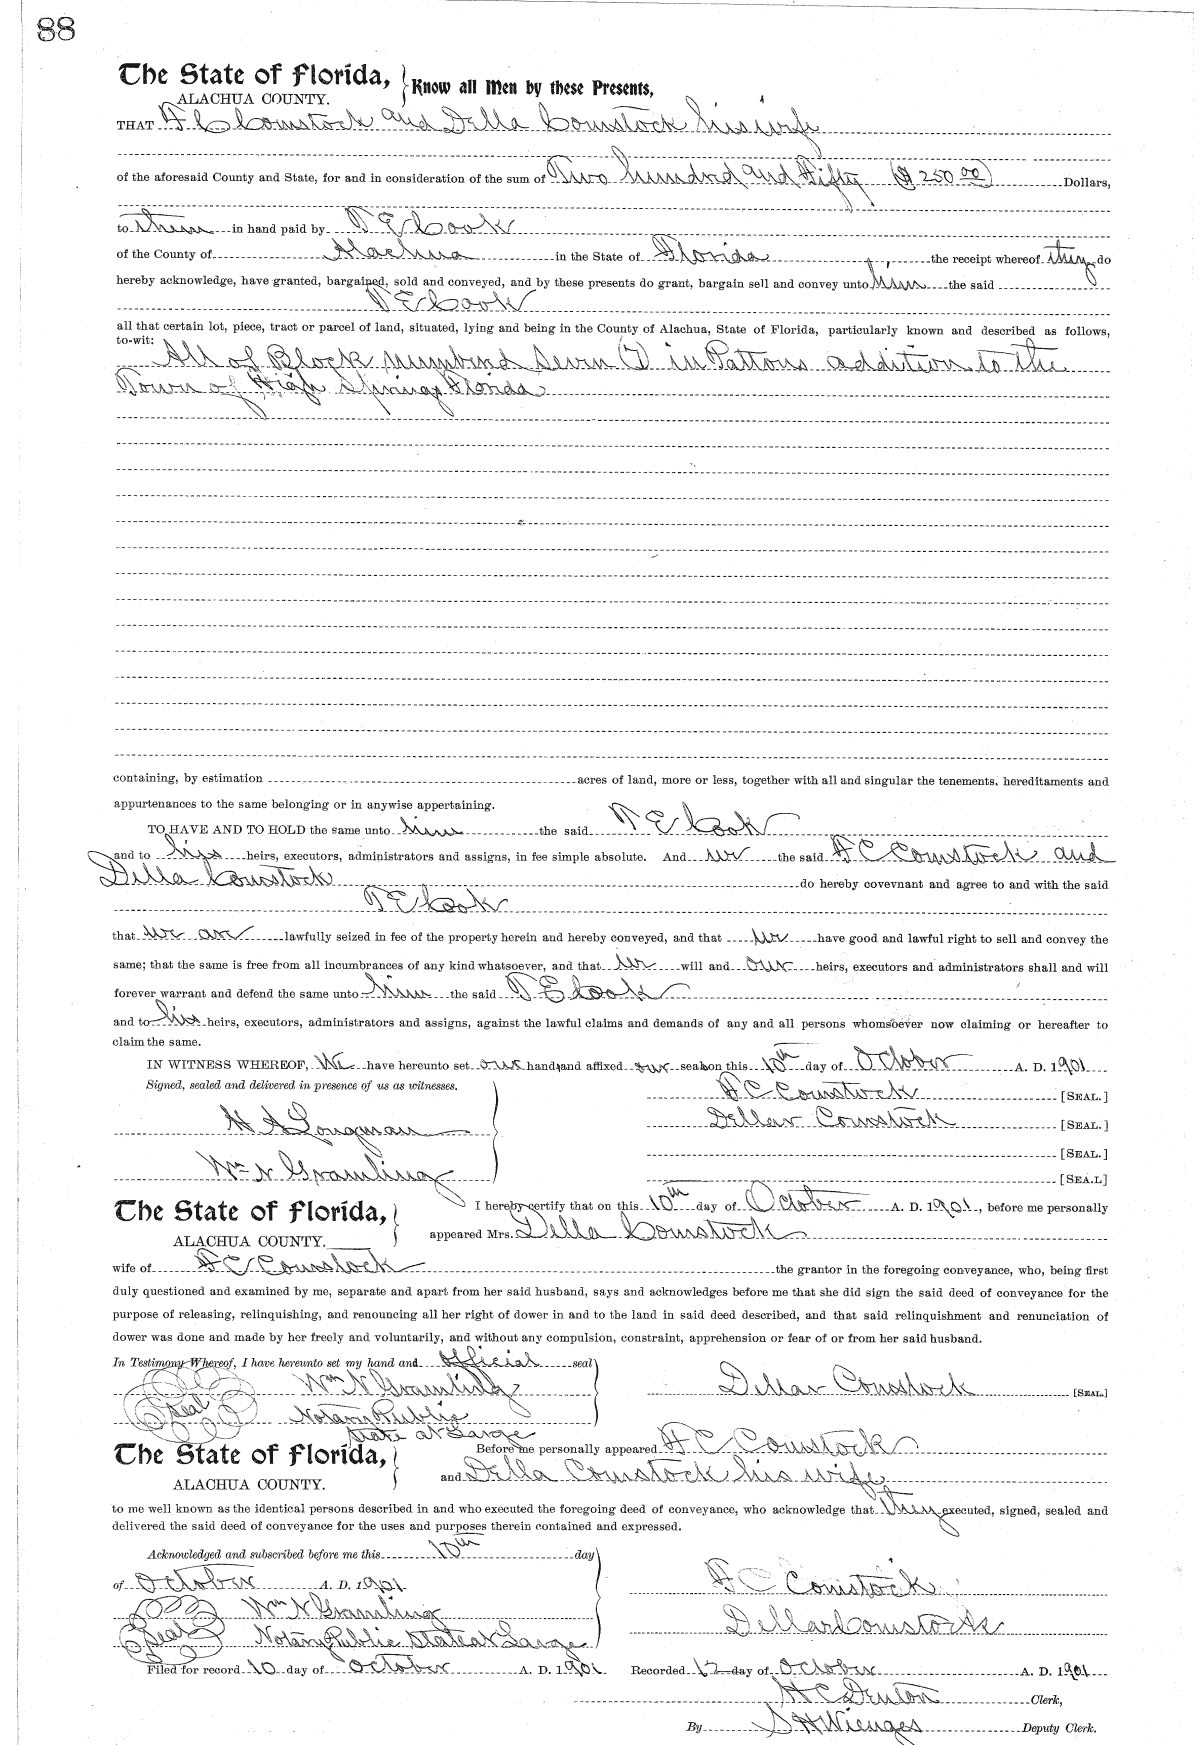 88
The State of Florida,
ALACHUA COUNTY.
Know all Men by these Presents,
THAT H C Comstock and Della Comstock his wife
of the aforesaid County and State, for and in consideration of the sum of Two hundred and Fifty ($250 00) Dollars,
to them in hand paid by T E Cook
of the County of Alachua in the State of Florida, the receipt whereof they do
hereby acknowledge, have granted, bargained, sold and conveyed, and by these presents do grant, bargain sell and convey unto him the said
T E Cook
all that certain lot, piece, tract or parcel of land, situated, lying and being in the County of Alachua, State of Florida, particularly known and described as follows,
to-wit:
All of Block Numbered Seven (7) in Pattons addition to the
Town of High Springs Florida
containing, by estimation acres of land, more or less, together with all and singular the tenements, hereditaments and
appurtenances to the same belonging or in anywise appertaining.
TO HAVE AND TO HOLD the same unto him the said T E Cook
and to his heirs, executors, administrators and assigns, in fee simple absolute. And we the said H C Comstock and
Della Comstock do hereby covevnant and agree to and with the said
T E Cook
that we are lawfully seized in fee of the property herein and hereby conveyed, and that we have good and lawful right to sell and convey the
same; that the same is free from all incumbrances of any kind whatsoever, and that we will and our heirs, executors and administrators shall and will
forever warrant and defend the same unto him the said T E Cook
and to his heirs, executors, administrators and assigns, against the lawful claims and demands of any and all persons whomsoever now claiming or hereafter to
claim the same.
IN WITNESS WHEREOF, We have hereunto set our hands and affixed our seals on this 10th day of October A. D. 1901
Signed, sealed and delivered in presence of us as witnesses.
H C Comstock [SEAL.]
Dellar Comstock [SEAL.]
H A Longman
[SEAL.]
Wm N Gramling
[SEA.L]
The State of Florida,
ALACHUA COUNTY.
I hereby certify that on this 10th day of October A. D. 1901, before me personally
appeared Mrs. Della Comstock
wife of H C Comstock the grantor in the foregoing conveyance, who, being first
duly questioned and examined by me, separate and apart from her said husband, says and acknowledges before me that she did sign the said deed of conveyance for the
purpose of releasing, relinquishing, and renouncing all her right of dower in and to the land in said deed described, and that said relinquishment and renunciation of
dower was done and made by her freely and voluntarily, and without any compulsion, constraint, apprehension or fear of or from her said husband.
In Testimony Whereof, I have hereunto set my hand and official seal
Wm N Gramling
Dellar Comstock [SEAL]
Seal Notary Public
State at Large
The State of Florida,
ALACHUA COUNTY.
Before me personally appeared H C Comstock
and Della Comstock his wife
to me well known as the identical persons described in and who executed the foregoing deed of conveyance, who acknowledge that they executed, signed, sealed and
delivered the said deed of conveyance for the uses and purposes therein contained and expressed.
Acknowledged and subscribed before me this 10th day
of October A. D. 1901
H C Comstock
Wm N Gramling
Dellar Comstock
Seal Notary Public State at Large
Filed for record 10 day of October A. D. 1901 Recorded 12 day of October A. D. 1901
H C Denton Clerk,
By S H Wienges Deputy Clerk.